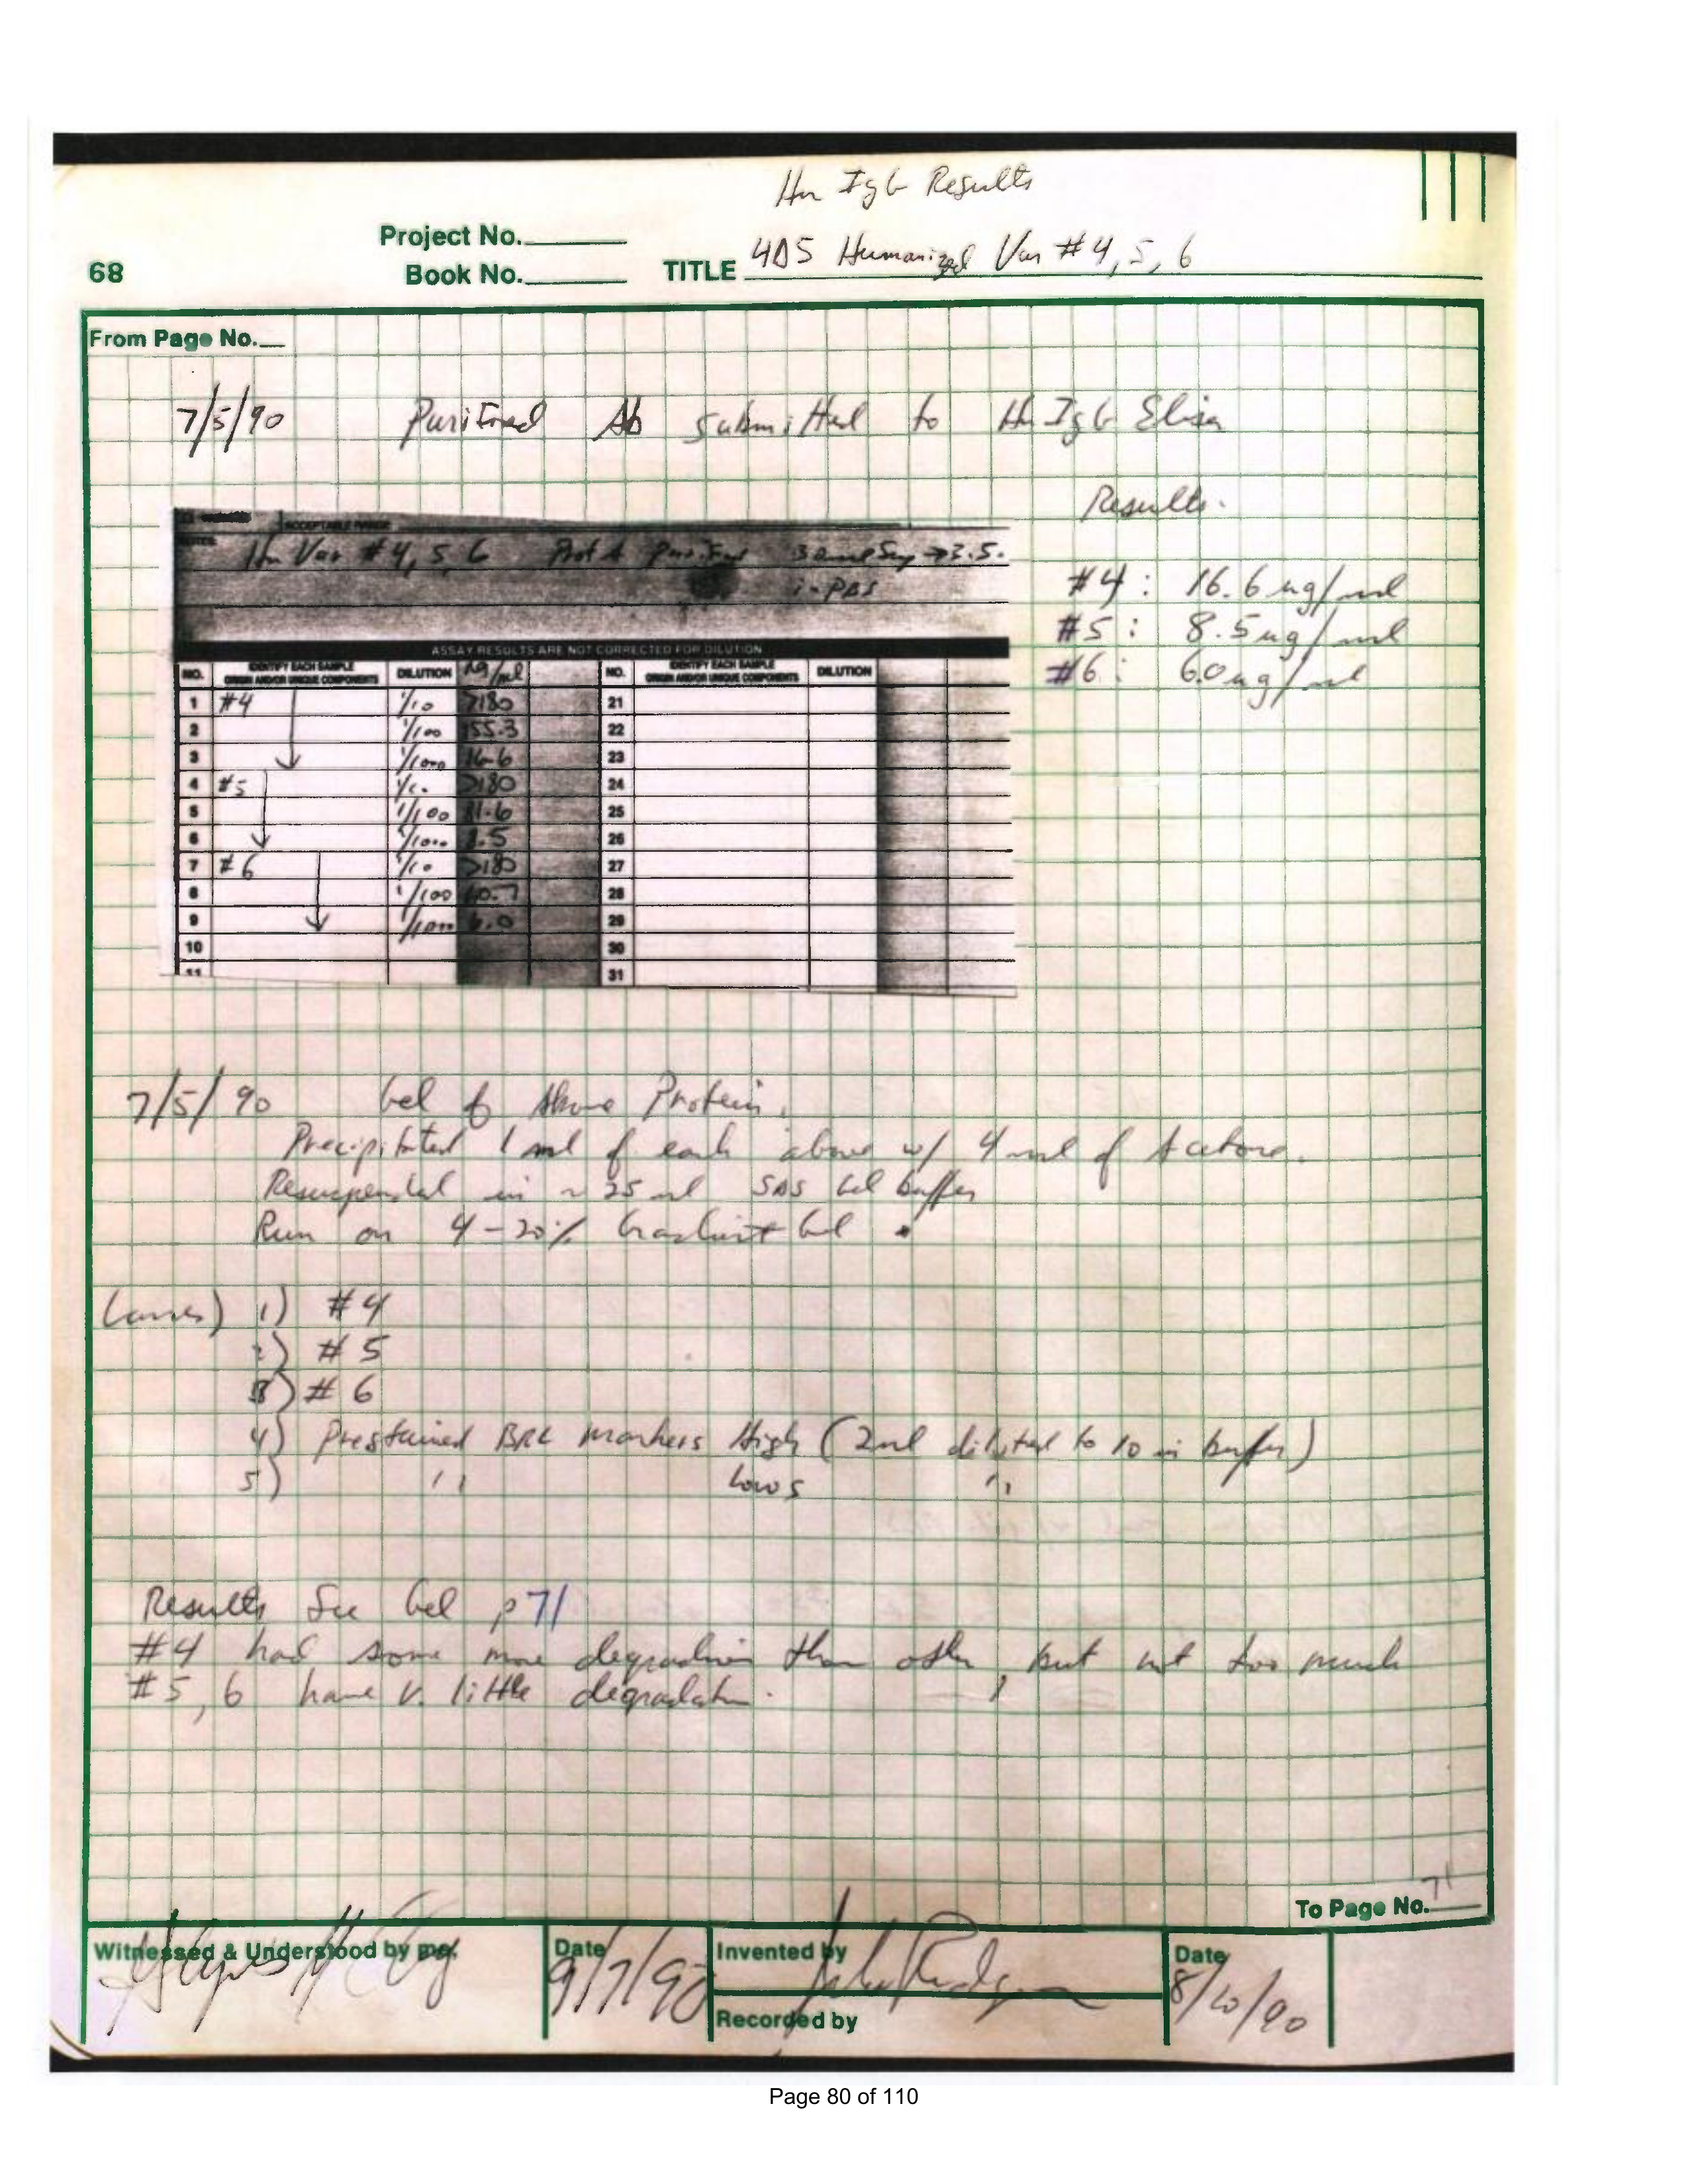 Hu IgG Results
Project No.
68
Book No.
TITLE 4D5 Humanized Var #4, 5, 6
From Page No.
7/5/90 Purified Ab submitted to Hu IgG Elisa
Results.
ACCEPTABLE RANGE
NOTES:
Hu Var #4, 5, 6 Prot A Purified
in PBS
#4: 16.6 ug/ml
#5: 8.5 ug/ml
#6: 6.0 ug/ml
ASSAY RESULTS ARE NOT CORRECTED FOR DILUTION
NO. IDENTIFY EACH SAMPLE ORIGIN AND/OR UNIQUE COMPONENTS DILUTION ng/ml NO. IDENTIFY EACH SAMPLE ORIGIN AND/OR UNIQUE COMPONENTS DILUTION
1 #4 1/10 >180 21
2 1/100 155.3 22
3 1/1000 16.6 23
4 #5 1/10 >180 24
5 1/100 81.6 25
6 1/1000 8.5 26
7 #6 1/10 >180 27
8 1/100 60.7 28
9 1/1000 6.0 29
10 30
11 31
7/5/90 Gel of Above Protein.
Precipitated 1 ml of each above w/ 4 ml of Acetone.
Resuspended in ~ 25 ul SDS Gel buffer
Run on 4-20% Gradient Gel.
Lanes) 1) #4
2) #5
3) #6
4) Prestained BRL markers High (2ul diluted to 10 in buffer)
5) " Lows "
Results See Gel p 71
#4 had some more degradation than other, but not too much
#5, 6 have v. little degradation.
To Page No. 71
Witnessed & Understood by me,
Date
9/7/90
Invented by
Recorded by
Date
8/20/90
Page 80 of 110